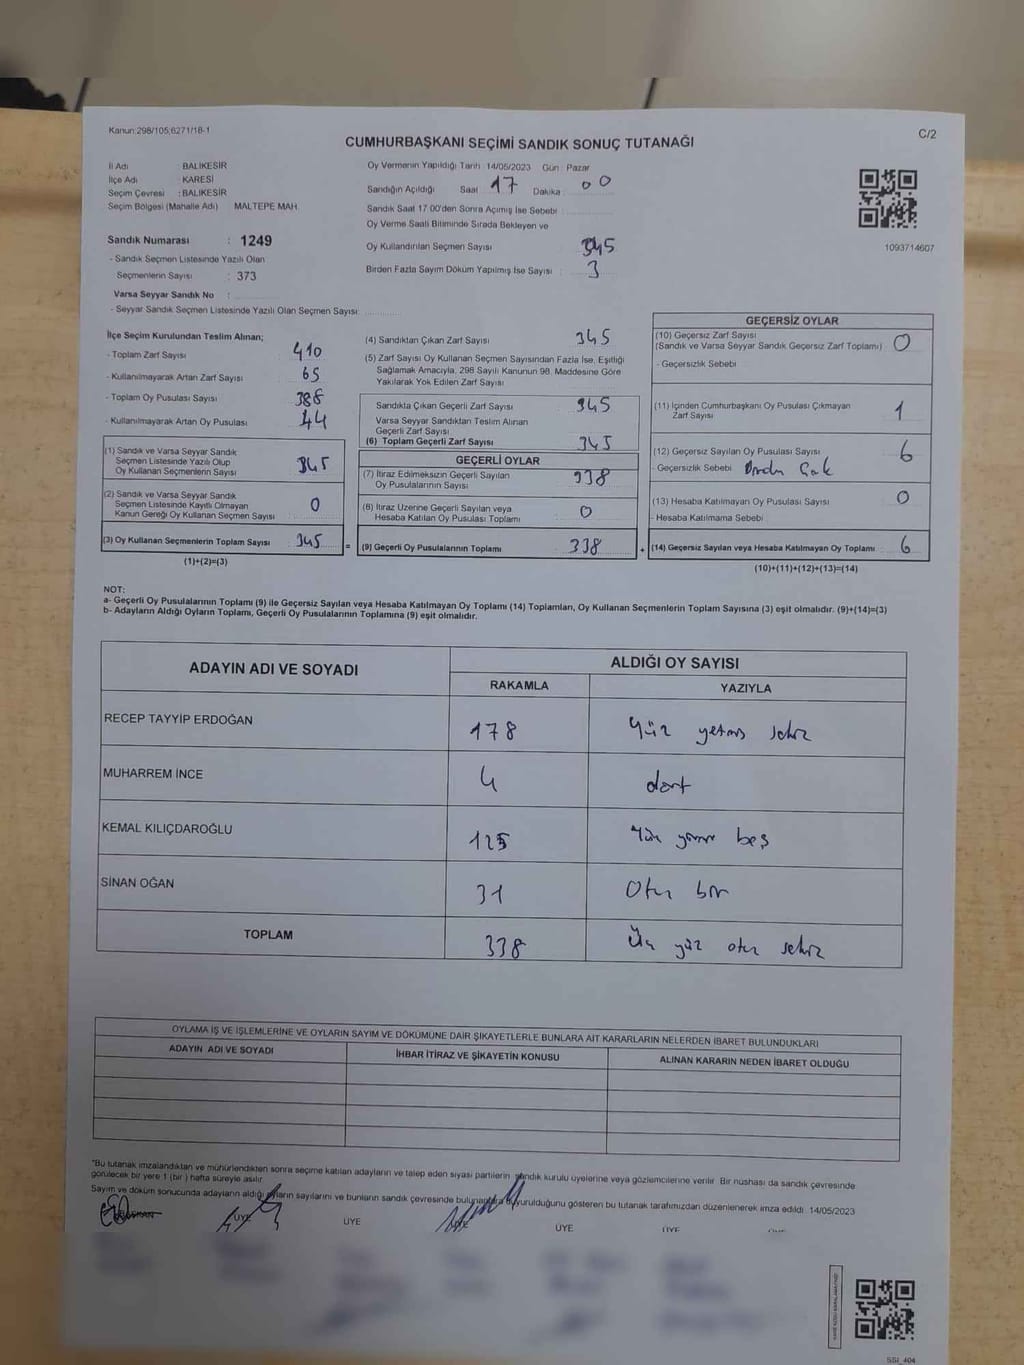 Kanun:298/105,6271/18-1
C/2
CUMHURBAŞKANI SEÇİMİ SANDIK SONUÇ TUTANAĞI
İl Adı : BALIKESİR
İlçe Adı : KARESİ
Seçim Çevresi : BALIKESİR
Seçim Bölgesi (Mahalle Adı) MALTEPE MAH.
Oy Vermenin Yapıldığı Tarih 14/05/2023 Gün : Pazar
Sandığın Açıldığı Saat 17 Dakika : 00
Sandık Saat 17:00'den Sonra Açımış İse Sebebi :
Oy Verme Saati Bitiminde Sırada Bekleyen ve
Oy Kullandırılan Seçmen Sayısı 345
Birden Fazla Sayım Döküm Yapılmış İse Sayısı : 3
1093714607
Sandık Numarası : 1249
- Sandık Seçmen Listesinde Yazılı Olan
Seçmenlerin Sayısı : 373
Varsa Seyyar Sandık No :
- Seyyar Sandık Seçmen Listesinde Yazılı Olan Seçmen Sayısı:
İlçe Seçim Kurulundan Teslim Alınan;
- Toplam Zarf Sayısı 410
- Kullanılmayarak Artan Zarf Sayısı 65
- Toplam Oy Pusulası Sayısı 388
- Kullanılmayarak Artan Oy Pusulası 44
(1) Sandık ve Varsa Seyyar Sandık
Seçmen Listesinde Yazılı Olup
Oy Kullanan Seçmenlerin Sayısı 345
(2) Sandık ve Varsa Seyyar Sandık
Seçmen Listesinde Kayıtlı Olmayan
Kanun Gereği Oy Kullanan Seçmen Sayısı 0
(3) Oy Kullanan Seçmenlerin Toplam Sayısı 345 =
(1)+(2)=(3)
(4) Sandıktan Çıkan Zarf Sayısı 345
(5) Zarf Sayısı Oy Kullanan Seçmen Sayısından Fazla İse, Eşitliği
Sağlamak Amacıyla, 298 Sayılı Kanunun 98. Maddesine Göre
Yakılarak Yok Edilen Zarf Sayısı
Sandıkta Çıkan Geçerli Zarf Sayısı 345
Varsa Seyyar Sandıktan Teslim Alınan
Geçerli Zarf Sayısı
(6) Toplam Geçerli Zarf Sayısı 345
GEÇERLİ OYLAR
(7) İtiraz Edilmeksizin Geçerli Sayılan
Oy Pusulalarının Sayısı 338
(8) İtiraz Üzerine Geçerli Sayılan veya
Hesaba Katılan Oy Pusulası Toplamı 0
(9) Geçerli Oy Pusulalarının Toplamı 338 +
GEÇERSİZ OYLAR
(10) Geçersiz Zarf Sayısı
(Sandık ve Varsa Seyyar Sandık Geçersiz Zarf Toplamı) 0
- Geçersizlik Sebebi
(11) İçinden Cumhurbaşkanı Oy Pusulası Çıkmayan
Zarf Sayısı 1
(12) Geçersiz Sayılan Oy Pusulası Sayısı 6
- Geçersizlik Sebebi
(13) Hesaba Katılmayan Oy Pusulası Sayısı 0
- Hesaba Katılmama Sebebi
(14) Geçersiz Sayılan veya Hesaba Katılmayan Oy Toplamı 6
(10)+(11)+(12)+(13)=(14)
NOT:
a- Geçerli Oy Pusulalarının Toplamı (9) ile Geçersiz Sayılan veya Hesaba Katılmayan Oy Toplamı (14) Toplamları, Oy Kullanan Seçmenlerin Toplam Sayısına (3) eşit olmalıdır. (9)+(14)=(3)
b- Adayların Aldığı Oyların Toplamı, Geçerli Oy Pusulalarının Toplamına (9) eşit olmalıdır.
ADAYIN ADI VE SOYADI
ALDIĞI OY SAYISI
RAKAMLA YAZIYLA
RECEP TAYYİP ERDOĞAN 178 Yüz yetmiş sekiz
MUHARREM İNCE 4 dört
KEMAL KILIÇDAROĞLU 125 Yüz yirmi beş
SİNAN OĞAN 31 Otuz bir
TOPLAM 338 Üç yüz otuz sekiz
OYLAMA İŞ VE İŞLEMLERİNE VE OYLARIN SAYIM VE DÖKÜMÜNE DAİR ŞİKAYETLERLE BUNLARA AİT KARARLARIN NELERDEN İBARET BULUNDUKLARI
ADAYIN ADI VE SOYADI İHBAR İTİRAZ VE ŞİKAYETİN KONUSU ALINAN KARARIN NEDEN İBARET OLDUĞU
"Bu tutanak imzalandıktan ve mühürlendikten sonra seçime katılan adayların ve talep eden siyasi partilerin sandık kurulu üyelerine veya gözlemcilerine verilir. Bir nüshası da sandık çevresinde
görülecek bir yere 1 (bir) hafta süreyle asılır.
Sayım ve döküm sonucunda adayların aldığı oyların sayılarını ve bunların sandık çevresinde bulunanlara duyurulduğunu gösteren bu tutanak tarafımızdan düzenlenerek imza edildi. 14/05/2023
BAŞKAN ÜYE ÜYE ÜYE ÜYE ÜYE
SSİ_404